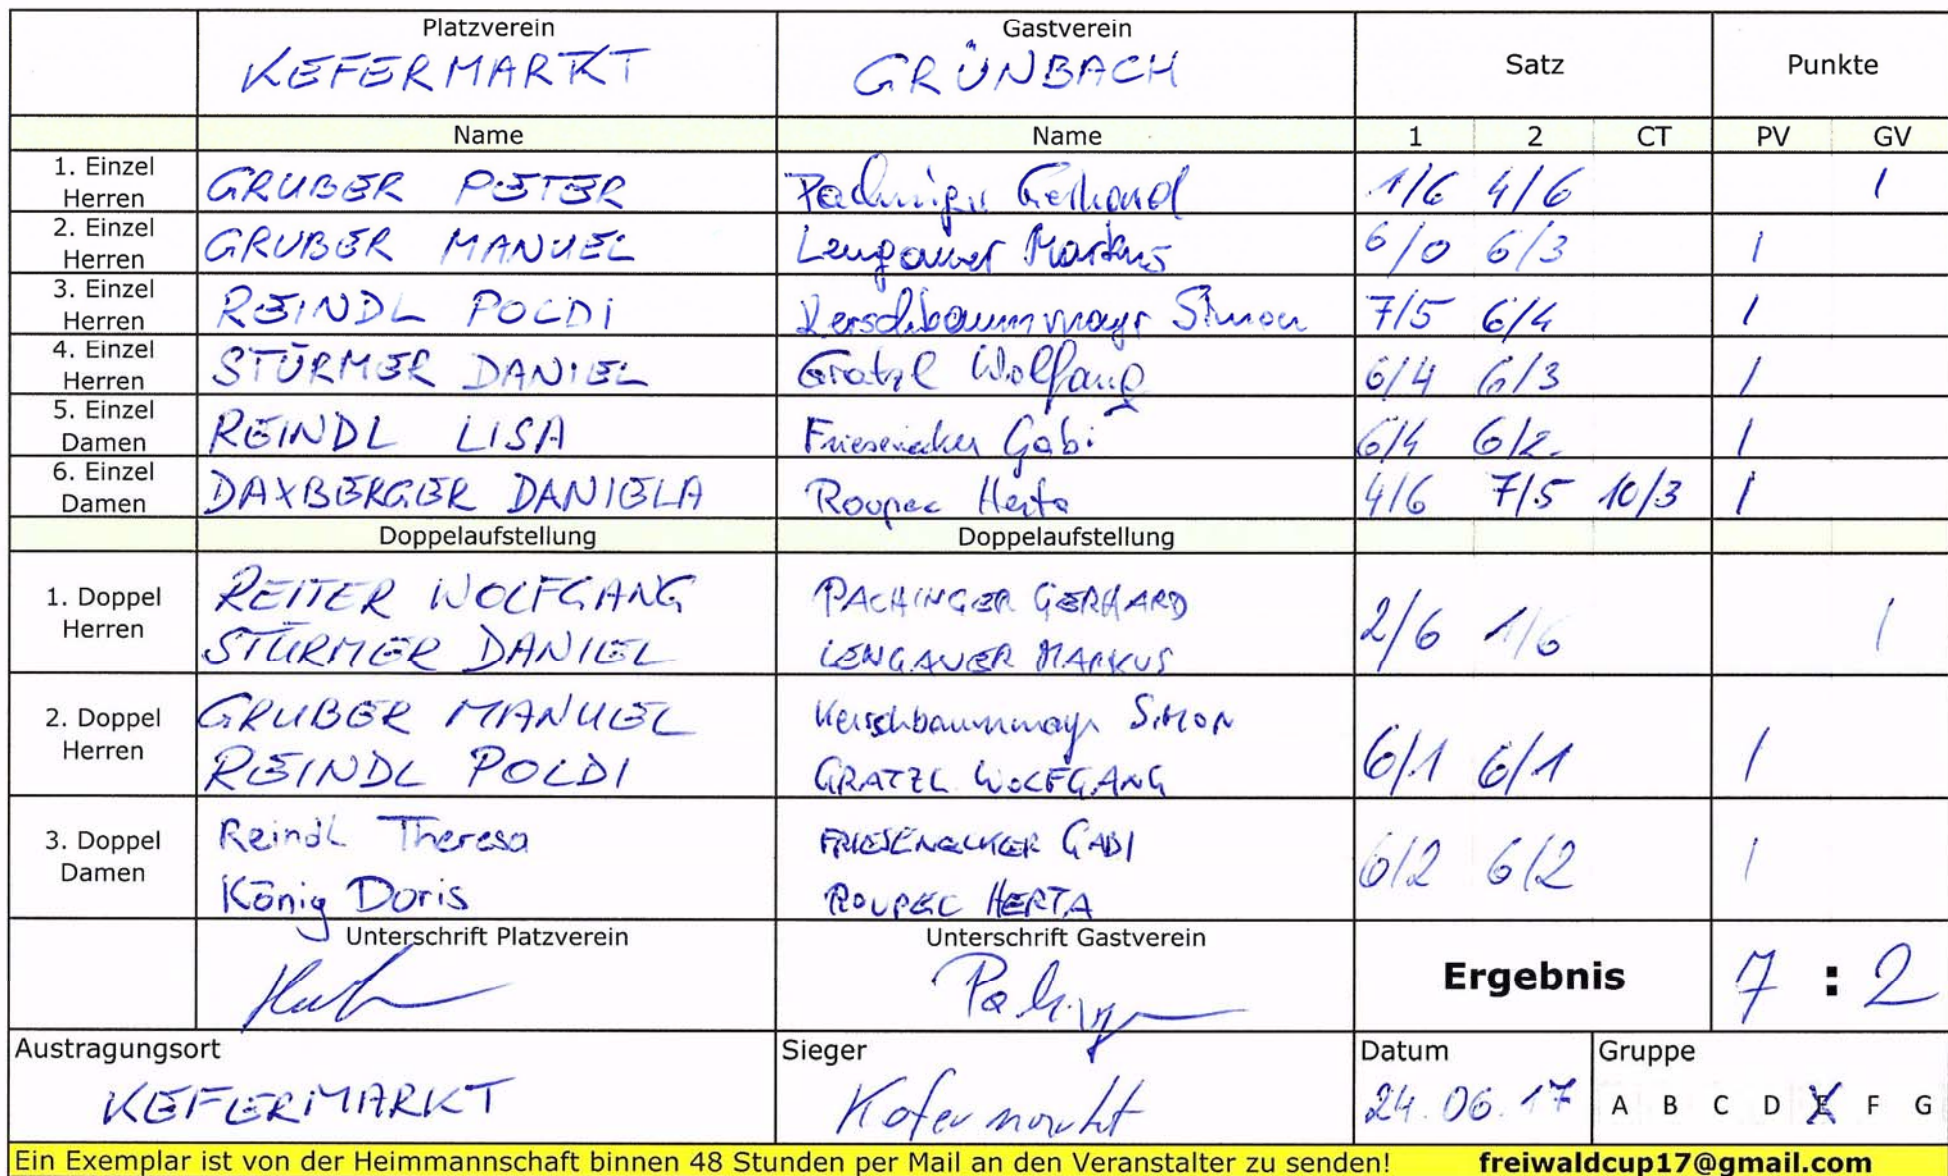 Platzverein Gastverein Satz Punkte
KEFERMARKT GRÜNBACH
Name Name 1 2 CT PV GV
1. Einzel Herren GRUBER PETER Pachinger Gerhard 1/6 4/6 1
2. Einzel Herren GRUBER MANUEL Lengauer Markus 6/0 6/3 1
3. Einzel Herren REINDL POLDI Kerschbaummayr Simon 7/5 6/4 1
4. Einzel Herren STÜRMER DANIEL Gratzl Wolfgang 6/4 6/3 1
5. Einzel Damen REINDL LISA Friesenecker Gabi 6/4 6/2 1
6. Einzel Damen DAXBERGER DANIELA Roupec Herta 4/6 7/5 10/3 1
Doppelaufstellung Doppelaufstellung
1. Doppel Herren REITER WOLFGANG PACHINGER GERHARD 2/6 1/6 1
STÜRMER DANIEL LENGAUER MARKUS
2. Doppel Herren GRUBER MANUEL Kerschbaummayr SIMON 6/1 6/1 1
REINDL POLDI GRATZL WOLFGANG
3. Doppel Damen Reindl Theresa FRIESENECKER GABI 6/2 6/2 1
König Doris ROUPEC HERTA
Unterschrift Platzverein Unterschrift Gastverein Ergebnis 7 : 2
Austragungsort Sieger Datum Gruppe
KEFERMARKT Kefermarkt 24.06.17 A B C D E F G
Ein Exemplar ist von der Heimmannschaft binnen 48 Stunden per Mail an den Veranstalter zu senden! freiwaldcup17@gmail.com